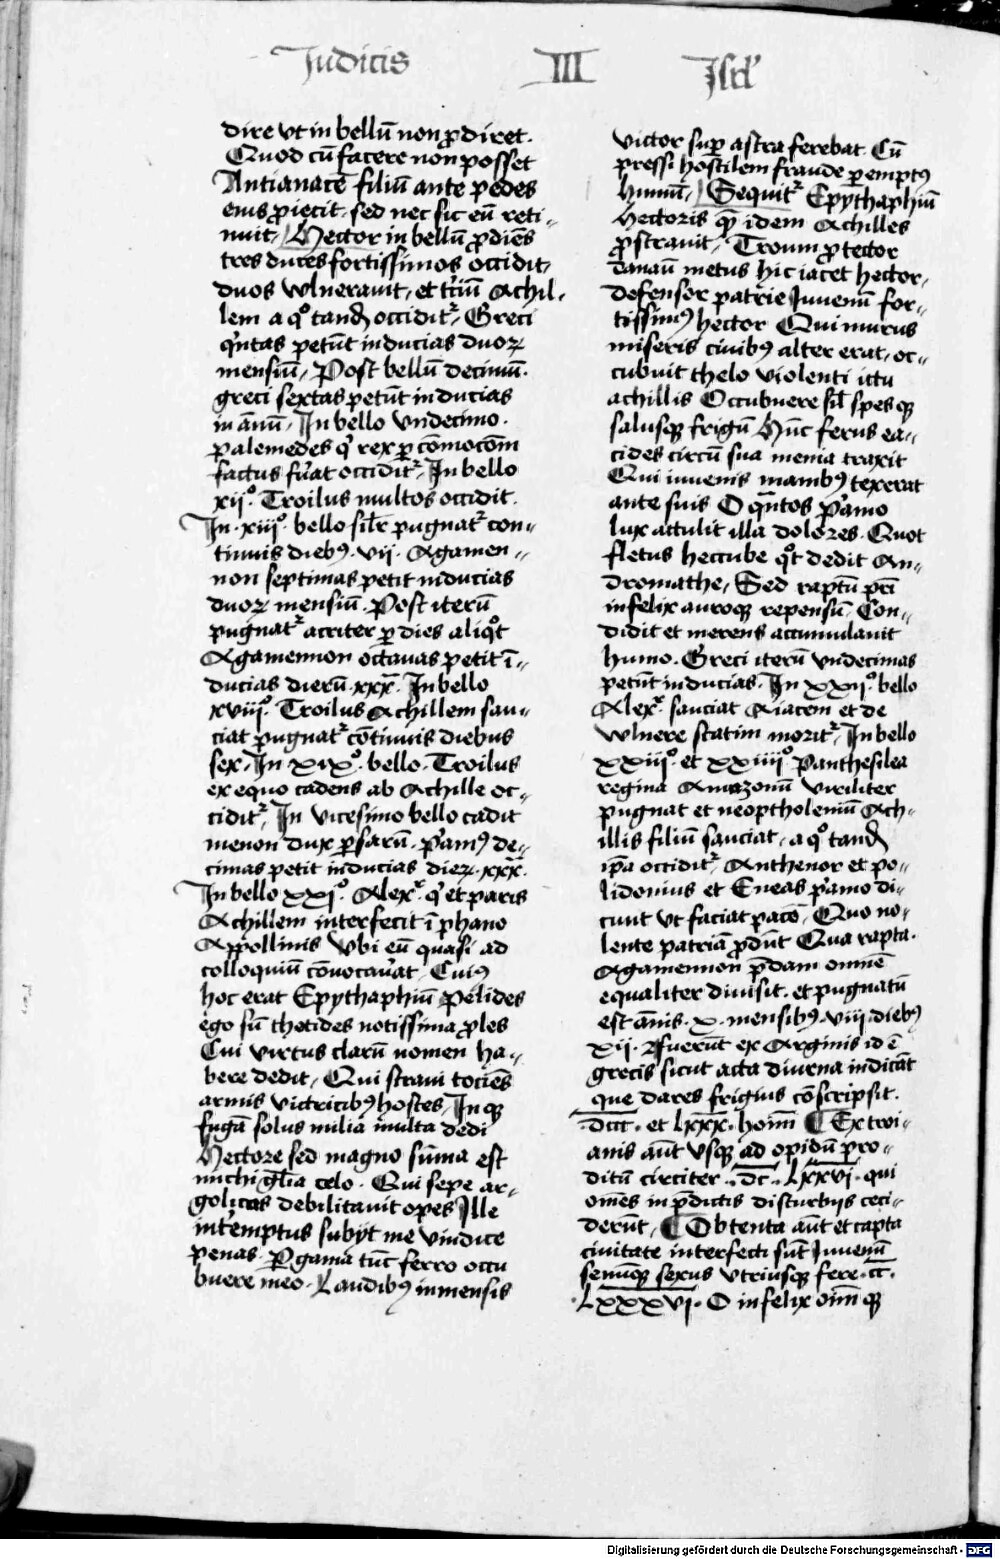 Judicis III Isrl'
dire vt in bellū non ꝓdiret.
Quod cū facere non posset
Antianactē filiū ante pedes
eius ꝓiecit. sed nec sic eū reti-
nuit. Hector in bellū ꝓdiēs
tres duces fortissimos occidit,
duos wlnerauit, et t'ciū Achil-
lem a qº tandē occidit'. Greci
q'ntas petūt inducias duoꝝ
mensiū. Post bellū decimū.
greci sextas petūt inducias
in ānū. In bello vndecimo.
palemedes q' rex ꝑ cōmocōm
factus fu'at occidit'. In bello
xijº. Troilus multos occidit.
In .xiijº. bello sil'r pugnat' con-
tinuis diebꝰ .vij. Agamen-
non septimas petit inducias
duoꝝ mensiū. Post iterū
pugnat' acriter ꝑ dies aliqºt
Agamennon octauas petit ī-
ducias dierū .xxx. In bello
xviijº. Troilus Achillem sau-
ciat pugnat' cōtinuis diebus
sex. In xixº. bello. Troilus
ex equo cadens ab Achille oc-
cidit'. In vicesimo bello cadit
menon dux ꝑsarū. P'amꝰ de-
cimas petit inducias dieꝝ .xxx.
In bello xxjº. Alex'. q' et paris
Achillem interfecit ī phano
Appollinis vbi eū quasi ad
colloquiū cōuocau'at. Cuiꝰ
hoc erat Epythaphiū Pelides
ego sū thetides notissima ꝓles
Cui virtus clarū nomen ha-
bere dedit. Qui straui tociēs
armis victricibꝰ hostes. Inqꝫ
fugā solus milia multa dedi
Hectore sed magno sūma est
michi gl'ia celo. Qui sepe ar-
golicas debilitauit opes Ille
int'emptus subijt me vindice
penas. P'gama tūc ferro occu
buere meo. Laudibꝰ inmensis
victor suꝑ astra ferebat. Cū
pressi hostilem fraude ꝑemptꝰ
humū. Sequit' Epythaphiū
Hectoris quē idem Achilles
ꝓstrauit. Troum ꝓtector
danaū metus hic iacet hector.
defensor patrie Juuenū for-
tissimꝰ hector Qui murus
miseris ciuibꝰ alter erat. oc-
cubuit thelo violenti ictu
achillis Occubuere sil' spesqꝫ
salusqꝫ frigū Hūc ferus ea-
cides circū sua menia traxit
Qui iuuenis manibꝰ texerat
ante suis O q'ntos p'amo
lux attulit illa dolores. Quot
fletus heccube qºt dedit An-
dromathe. Sed raptū pr̄i
infelix auroqꝫ repensū. Con-
didit et merens accumulauit
humo. Greci iterū vndecimas
petūt inducias. In xxijº. bello
Alex'. sauciat Aiacem et de
wlnere statim morit'. In bello
xxiijº. et xxiiijº. Panthesilea
regina Amazonū viriliter
pugnat et neoptholemū Ach-
illis filiū sauciat. a qº tandē
ip̄a occidit'. Anthenor et po-
lidonius et Eneas p'amo di-
cunt vt faciat pacē. Quo no-
lente patriā ꝓdūt Qua rapta.
Agamennon p̄dam omnē
equaliter diuisit. et pugnatū
est ānis .x. mensibꝰ .viij. diebꝰ
xij. Rfuerūt ex Arginis id ē
grecis sicut acta diurna indicāt
que dares frigius cōscripsit.
.dccc. et lxxx. hoim̄ ¶ Ex troi-
anis aūt vsqꝫ ad opidū ꝓro-
ditū circiter .dc. Lxxvj. qui
om̄es in p̄dictis disturbijs ceci-
derūt. ¶ Obtenta aūt et capta
ciuitate interfecti sūt Juuenū
senūqꝫ sexus vtriusqꝫ fere .cc.
.Lxxxvj. O infelix oīm qꝫ
Digitalisierung gefördert durch die Deutsche Forschungsgemeinschaft - DFG